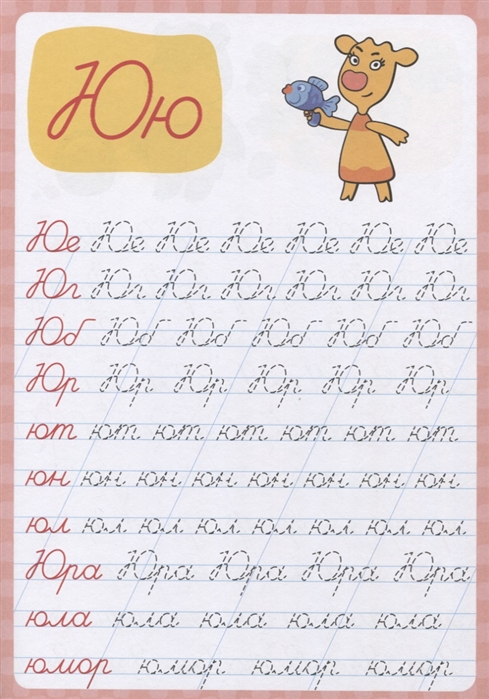 Юю
Юе Юе Юе Юе Юе Юе Юе
Юг Юг Юг Юг Юг Юг Юг
Юб Юб Юб Юб Юб Юб
Юр Юр Юр Юр Юр Юр
ют ют ют ют ют ют ют
юн юн юн юн юн юн юн юн
юл юл юл юл юл юл юл юл
Юра Юра Юра Юра Юра
юла юла юла юла юла
юмор юмор юмор юмор